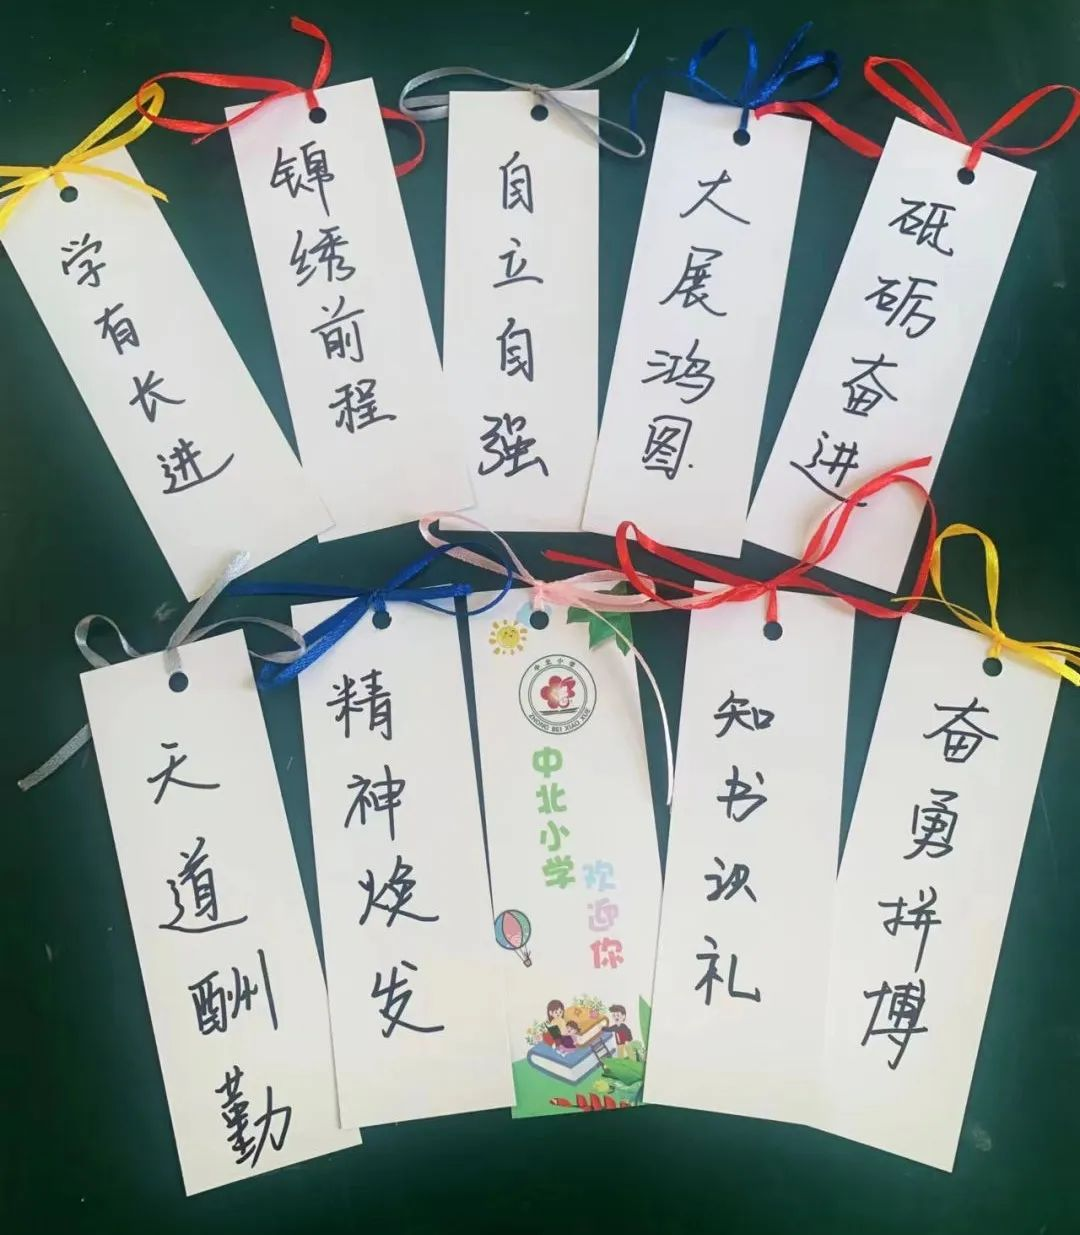 学有长进
锦绣前程
自立自强
大展鸿图.
砥砺奋进
天道酬勤
精神焕发
中北小学
ZHONG BEI XIAO XUE
中北小学
欢迎你
知书识礼
奋勇拼搏